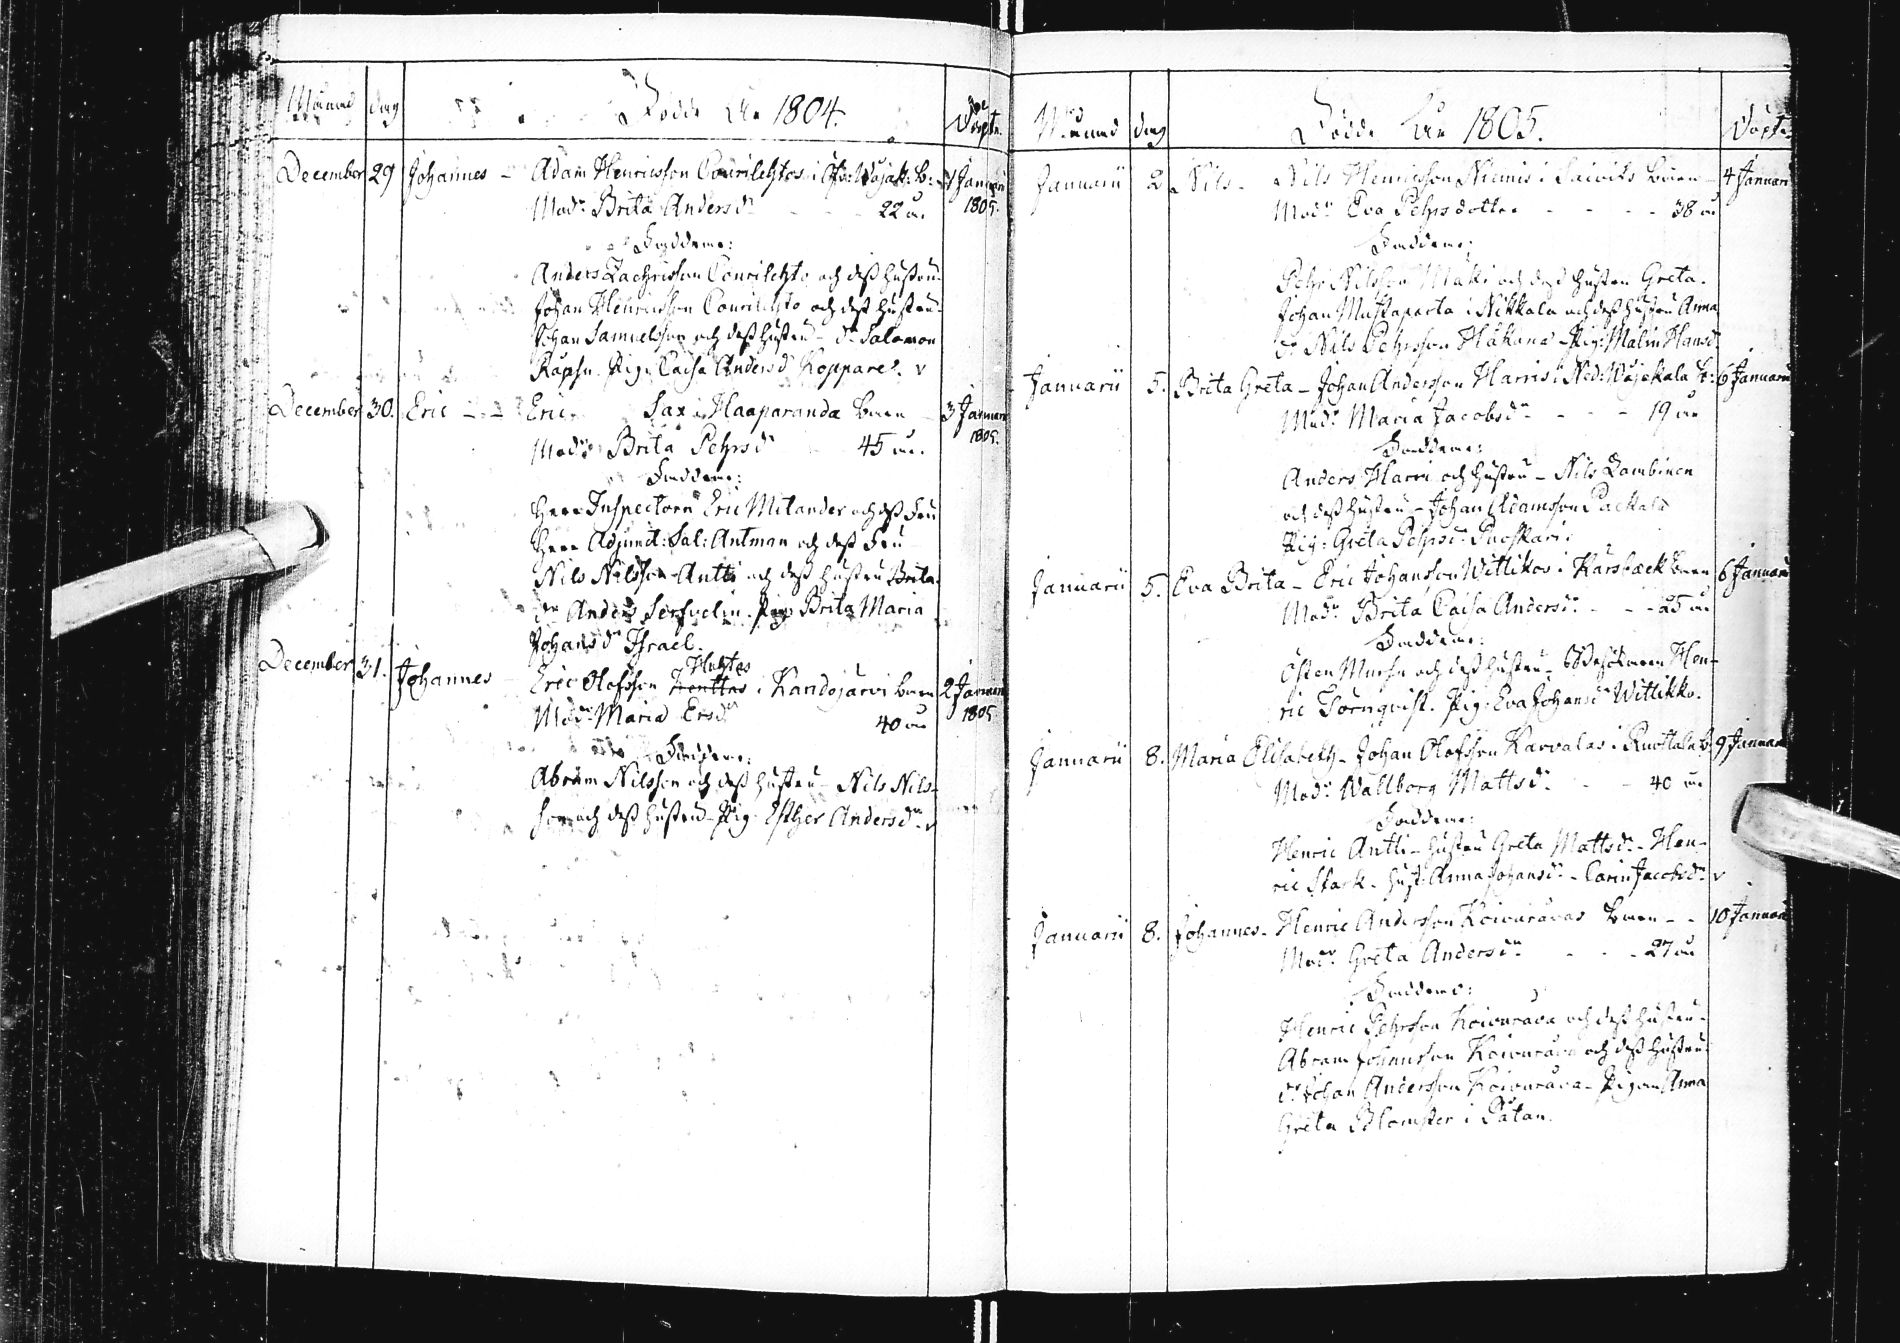 Månad dag Födde År 1804. Döpte
December 29 Johannes - Adam Henricsson Courilehtos i Öfr: Wojak: B:n 1 Januarii
Mod:r Brita Andersd:r - - - 22 år 1805.
Faddrar:
Anders Zachrisson Courilehto och dess hustru
Johan Henricsson Courilehto och dess hustru
Johan Samuelsson och dess hustru - Dr. Salomon
Rapsu. Pig: Caisa Andersd:r Koppare. v
December 30. Eric - - Eric Sax i Haaparanda Barn 3 Januarii
Mod:r Brita Pehrsd:r 45 år. 1805.
Faddrar:
Herr Inspectorn Eric Mitander och dess Fru
Herr Adjunct: Sal: Antman och dess Fru
Nils Nilsson Antti och dess hustru Brita.
dr. Anders Servelin. Pig: Brita Maria
Johansd:r Israel.
December 31. Johannes - Huhtas
Eric Olofsson Henttas i Kardojärvi barn 2 Januarii
Mod:r Maria Ersd:r 40 år 1805
Faddrar:
Abram Nilsson och dess hustru - Nils Nils-
son och dess hustru - Pig: Esther Andersd:r v
Månad dag Födde År 1805. Döpte
Januarii 2. Nils - Nils Henricsson Niemis i Saivits barn - 4 Januarii
Mod:r Eva Pehrsdotter - - - - 38 år
Faddrar:
Pehr Nilsson Mäki och dess hustru Greta.
Johan Mustaparta i Nikkala och dess hustru Anna
dr Nils Pehrsson Håkans - Pig: Malin Hansd:r
Januarii 5. Brita Greta - Johan Andersson Harris i Ned: Wojakala B: 6 Januarii
Mod:r Maria Jacobsd:r - - - 19 år
Faddrar:
Anders Harri och hustru - Nils Lambinen
och dess hustru - Johan Adamsson Packala
Pig: Greta Pehrsd:r Ruoskari.
Januarii 5. Eva Brita - Eric Johansson Wittikos i Karsbäck barn 6 Januarii
Mod:r Brita Caisa Andersd:r - - 25 år
Faddrar:
Östen Mursu och dess hustru - Hen-
ric Törnqvist. Pig: Eva Johansd:r Wittikko.
Januarii 8. Maria Elisabeth - Johan Olofsson Karvalas i Ruottala b. 9 Januarii
Mod:r Wallborg Mattsd:r - - 40 år
Faddrar:
Henric Antti - hustru Greta Mattsd:r - Hen-
ric Stark - hust: Anna Johansd:r - Carin Jacobsd:r v
Januarii 8. Johannes - Henric Andersson Koivuravas Barn - - 10 Januarii
Mod:r Greta Andersd:r - - - 27 år
Faddrar:
Henric Pehrsson Koivurava och dess hustru -
Abram Johansson Koivurava och dess hustru
dr: Johan Andersson Koivurava - Pigan Anna
Greta Blomster i Påtan.